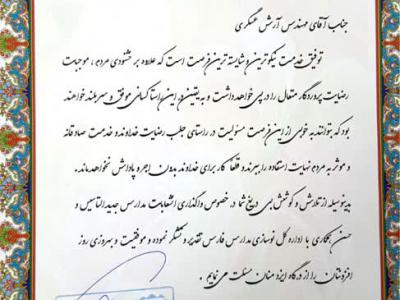 جناب آقای مهندس آرش عسگری
توفیق خدمت نیکوترین و شایسته ترین فرصت است که علاوه بر خشنودی مردم، موجبات
رضایت پروردگار متعال را در پی خواهد داشت و به یقین در این راستا کسانی موفق و سربلند خواهند
بود که بتوانند به خوبی از این فرصت مسئولیت در راستای جلب رضایت خداوند و خدمت صادقانه
و موثر به مردم نهایت استفاده را ببرند و قطعا کار برای خداوند بدون اجر و پاداش نخواهد ماند.
بدینوسیله از تلاش و کوشش بی دریغ شما در خصوص واگذاری انشعابات مدارس جدیدالتاسیس و
حسن همکاری با اداره کل نوسازی مدارس فارس تقدیر و تشکر نموده و موفقیت و بهروزی روز
افزونتان را از درگاه ایزد منان مسئلت می نمایم.